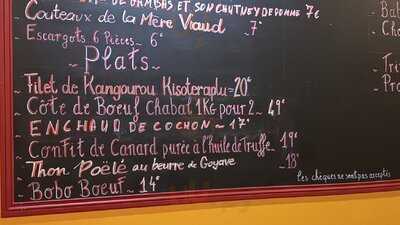 DE GAMBAS ET SON CHUTNEY DE POMME 7€
~ Couteaux de la Mère Viaud ~ 7€
~ Escargots 6 Pièces ~ 6€
~ Plats ~
~ Filet de Kangourou Kisoterapu = 20€
~ Côte de Boeuf Chabal 1KG pour 2 ~ 49€
~ ENCHAUD DE COCHON ~ 17€
~ Confit de Canard purée à l'huile de truffe ~ 19€
~ Thon Poêlé au beurre de Goyave ~ 18€
~ Bobo Boeuf ~ 14€
les chèques ne sont pas acceptés